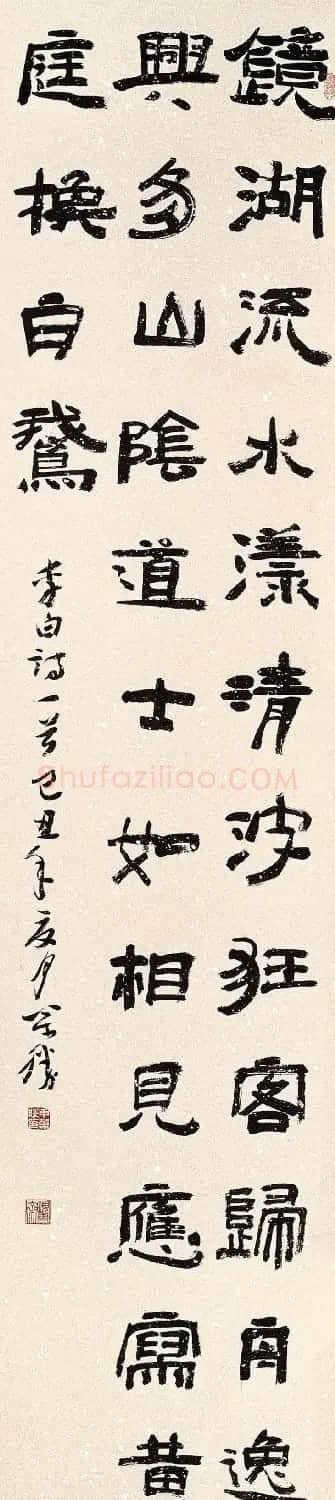 鏡湖流水漾清波狂客歸舟逸
興多山陰道士如相見應寫黄
庭換白鵞
李白詩一首己丑年夏月
Shufaziliao.COM